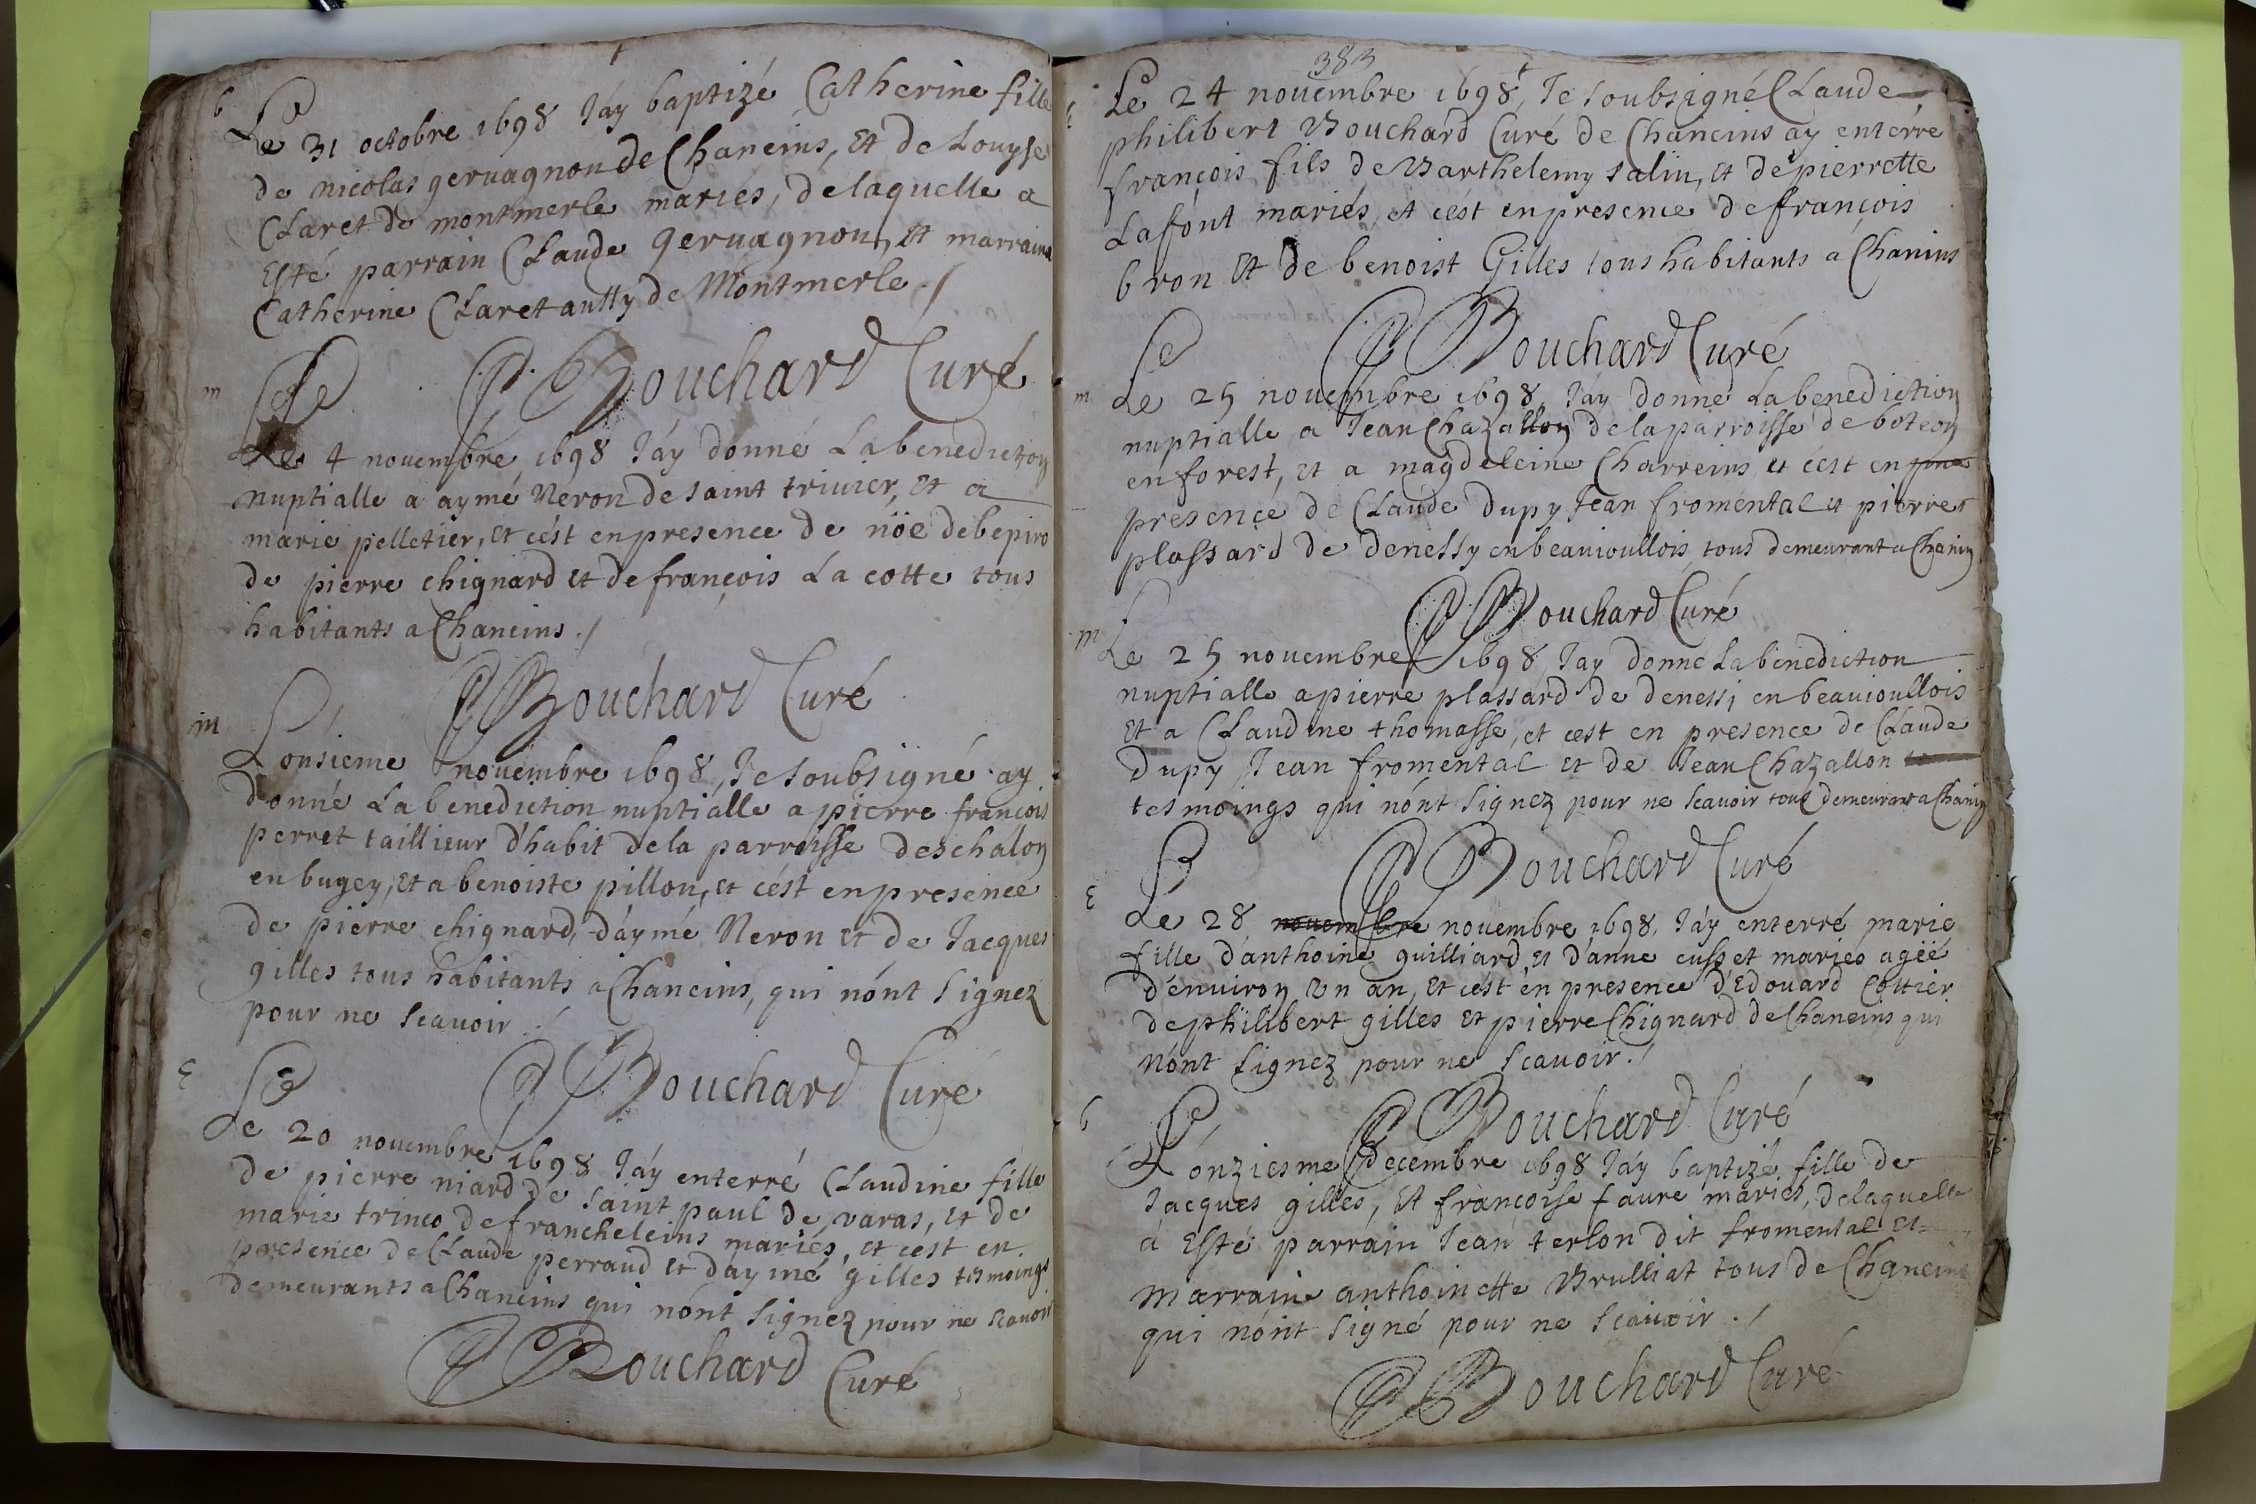 b
Le 31 octobre 1698 J'áy baptizé Catherine fille
de nicolas geruagnon de Chaneins, Et de Louyse
CLaret de montmerle mariés, de laquelle a
Esté parrain CLaude geruagnon, Et marraine
Catherine CLaret de Montmerle ./
P Bouchard Curé
m
Le 4 nouembre 1698 J'áy donné La benediction
nuptialle a aymé Neron de saint triuier, Et a
marie pelletier, Et cést en presence de nöe debepiro
de pierre chignard et de françois La cotte tous
habitants a Chaneins ./
P Bouchard Curé
m
Lonsieme nouembre 1698, Je soubsigné ay
donné La benediction nuptialle a pierre françois
perret taillieur d'habit de la parroisse deschalon
en bugey, Et a benoiste pillon, et cést en presence
de pierre chignard, d'áymé Neron et de Jacques
gilles tous habitants a Chaneins, qui nónt signez
pour ne scauoir ./
P Bouchard Curé
E
Le 20 nouembre 1698 J'áy enterré CLaudine fille
de pierre niard de saint paul de varas, et de
marie trinco de francheleins mariés, et cest en
presence de CLaude perraud et d'aymé gilles tesmoings
demeurants a Chaneins qui nónt signez pour ne scauoir
P Bouchard Curé
383
E
Le 24 nouembre 1698, Je soubsigné CLaude
philibert Bouchard Curé de Chaneins ay enterré
françois fils de Barthelemy salin, et de pierrette
Lafónt mariés, et cést en presence de françois
bron Et de benoist Gilles tous habitants a Chanins
P Bouchard Curé
m
Le 25 nouembre 1698, J'áy donné La benediction
nuptialle a Jean Chazallon de la parroisse de boteon
en forest, et a magdeleine Charreins et cést en
presence de CLaude dupy Jean fromental et pierre
plassard de denessy en beauioullois tous demeurant a Chanins
P Bouchard Curé
m
Le 25 nouembre 1698, J'ay donné La benediction
nuptialle a pierre plassard de denessi en beauioullois
Et a CLaudine thomasse, et cest en presence de CLaude
dupy Jean fromental et de Jean Chazallon
tesmoings qui nónt signez pour ne scauoir tous demeurant a Chanins
P Bouchard Curé
E
Le 28 nouembre nouembre 1698, J'áy enterré marie
fille d'anthoine guilliard, et d'anne cusset mariés agéé
d'enuiron Un an, et cést en presence d'Edouard Cottier
de philibert gilles et pierre Chignard de Chaneins qui
nónt signez pour ne scauoir ./
P Bouchard Curé
b
L'ónziesme Decembre 1698 J'áy baptizé fille de
Jacques gilles, Et françoise faure mariés, de laquelle
á Esté parrain Jean terlon dit fromental et
marraine anthoinette Brulliat tous de Chaneins
qui nónt signé pour ne scauoir ./
P Bouchard Curé